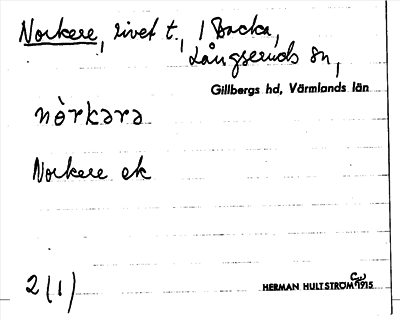 Norkere, rivet t., 1 Backa,
Långseruds sn,
Gillbergs hd, Värmlands län
nòrkərə
Norkere ek
2(1)
HERMAN HULTSTRÖM 1915